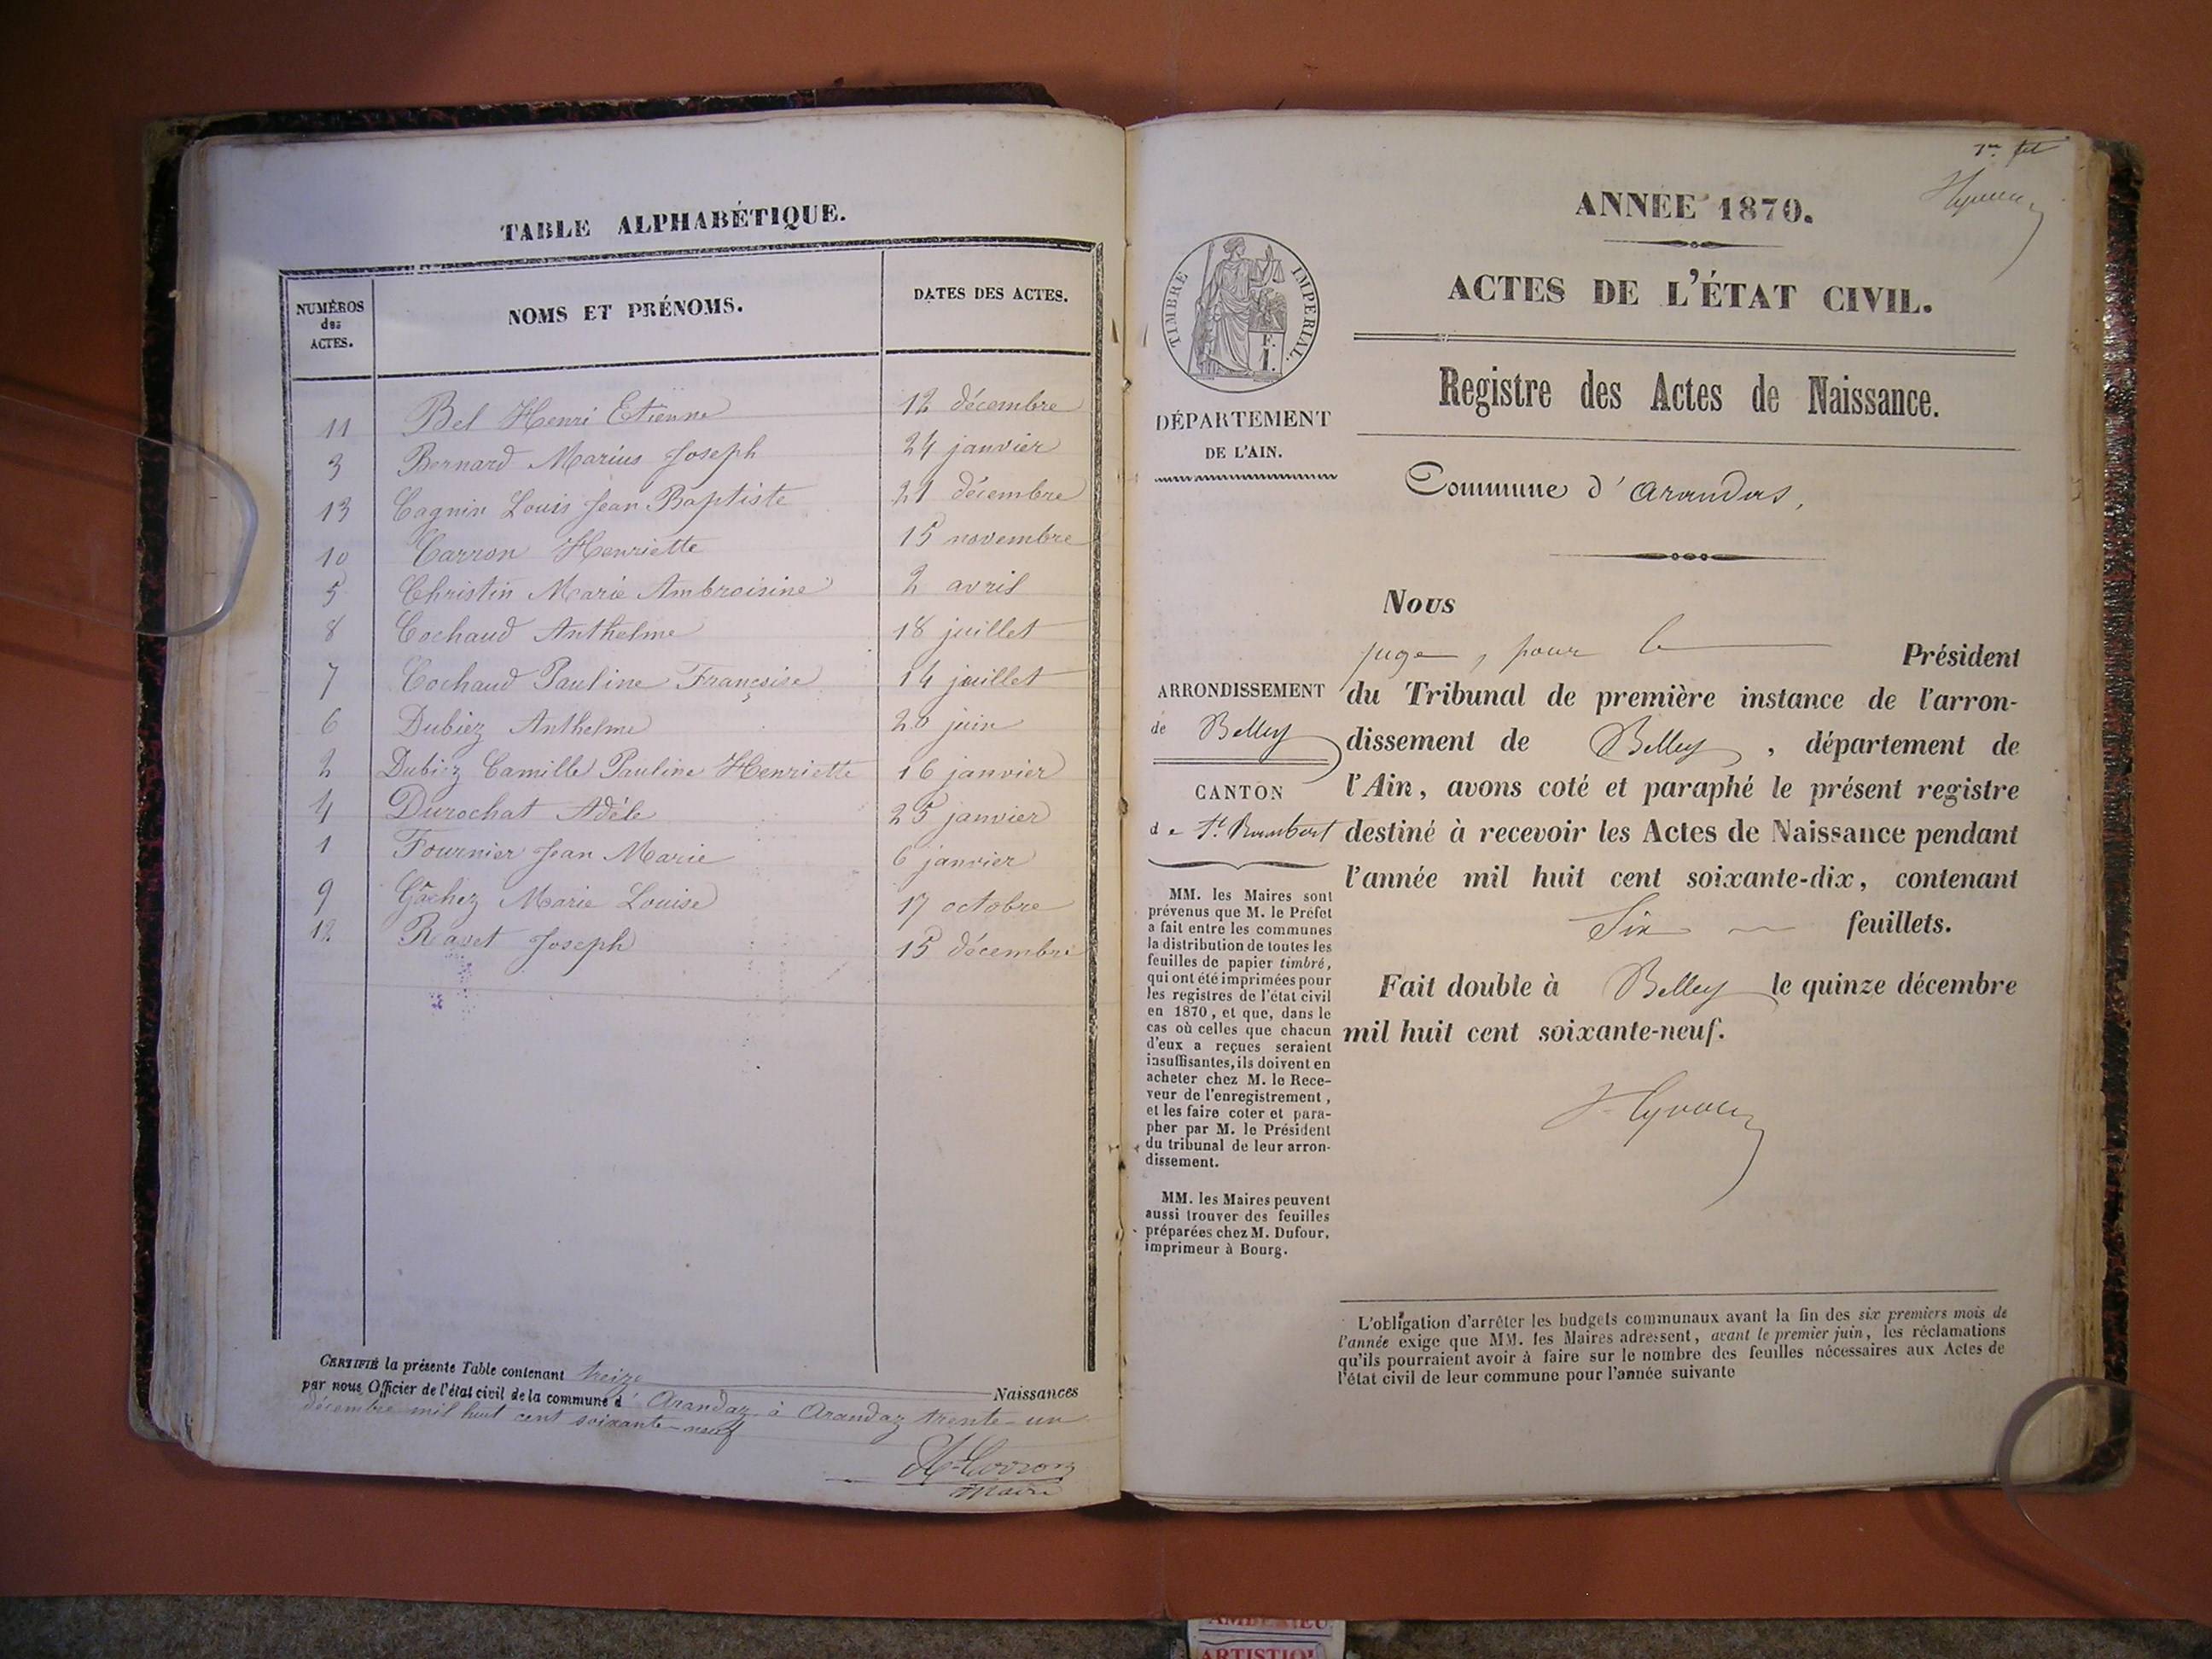 TABLE ALPHABÉTIQUE.
NUMÉROS des ACTES. NOMS ET PRÉNOMS. DATES DES ACTES.
11 Bel Henri Etienne 12 décembre
3 Bernard Marius Joseph 24 janvier
13 Cagnin Louis Jean Baptiste 21 décembre
10 Carron Henriette 15 novembre
5 Christin Marie Ambroisine 2 avril
8 Cochaud Anthelme 18 juillet
7 Cochaud Pauline Françoise 14 juillet
6 Dubiez Anthelme 20 juin
2 Dubiez Camille Pauline Henriette 16 janvier
4 Durochat Adèle 25 janvier
1 Fournier Jean Marie 6 janvier
9 Gâchez Marie Louise 17 octobre
12 Ravet Joseph 15 décembre
CERTIFIÉ la présente Table contenant treize Naissances
par nous Officier de l'état civil de la commune d' Arandaz à Arandaz trente-un
décembre mil huit cent soixante-neuf
Carron
Maire
1er fet
ANNÉE 1870.
TIMBRE IMPERIAL.
F.
1.
ACTES DE L'ÉTAT CIVIL.
Registre des Actes de Naissance.
DÉPARTEMENT
DE L'AIN.
Commune d'Arandas,
Nous
juge, pour le Président
du Tribunal de première instance de l'arron-
dissement de Belley, département de
l'Ain, avons coté et paraphé le présent registre
destiné à recevoir les Actes de Naissance pendant
l'année mil huit cent soixante-dix, contenant
Six feuillets.
Fait double à Belley le quinze décembre
mil huit cent soixante-neuf.
ARRONDISSEMENT
de Belley
CANTON
de St. Rambert
MM. les Maires sont
prévenus que M. le Préfet
a fait entre les communes
la distribution de toutes les
feuilles de papier timbré,
qui ont été imprimées pour
les registres de l'état civil
en 1870, et que, dans le
cas où celles que chacun
d'eux a reçues seraient
insuffisantes, ils doivent en
acheter chez M. le Rece-
veur de l'enregistrement,
et les faire coter et para-
pher par M. le Président
du tribunal de leur arron-
dissement.
MM. les Maires peuvent
aussi trouver des feuilles
préparées chez M. Dufour,
imprimeur à Bourg.
L'obligation d'arrêter les budgets communaux avant la fin des six premiers mois de
l'année exige que MM. les Maires adressent, avant le premier juin, les réclamations
qu'ils pourraient avoir à faire sur le nombre des feuilles nécessaires aux Actes de
l'état civil de leur commune pour l'année suivante